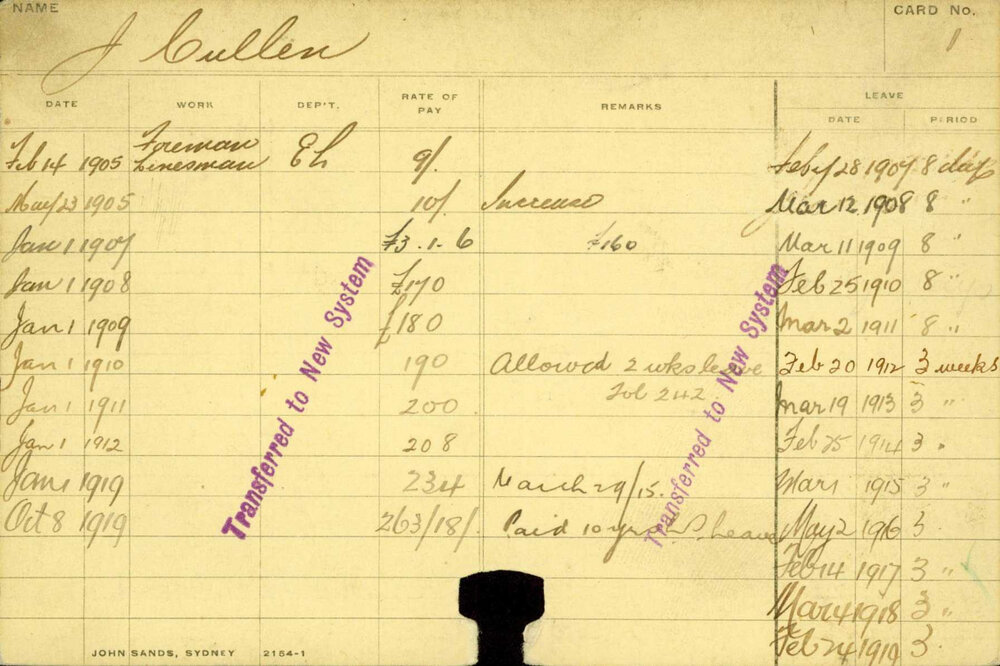 NAME
CARD No.
J Cullen
1
DATE WORK DEP'T. RATE OF PAY REMARKS LEAVE
DATE PERIOD
Feb 14 1905 Foreman Linesman EL 9/. Feby 28 1907 8 days
May 23 1905 10/. Increase Mar 12 1908 8 "
Jan 1 1907 £3.1.6 £160 Mar 11 1909 8 "
Jan 1 1908 £170 Feb 25 1910 8 "
Jan 1 1909 £180 Mar 2 1911 8 "
Jan 1 1910 190 Allowed 2 wks leave Feb 20 1912 3 weeks
Jan 1 1911 200 Fol 242 Mar 19 1913 3 "
Jan 1 1912 208 Feb 25 1914 3 "
Jan 1 1919 234 March 29/15. Mar 1 1915 3 "
Oct 8 1919 263/18/. Paid 10 yrs Leave May 2 1916 3
Feb 14 1917 3 "
Mar 4 1918 3 "
Feb 24 1919 3
Transferred to New System
Transferred to New System
JOHN SANDS, SYDNEY 2154-1